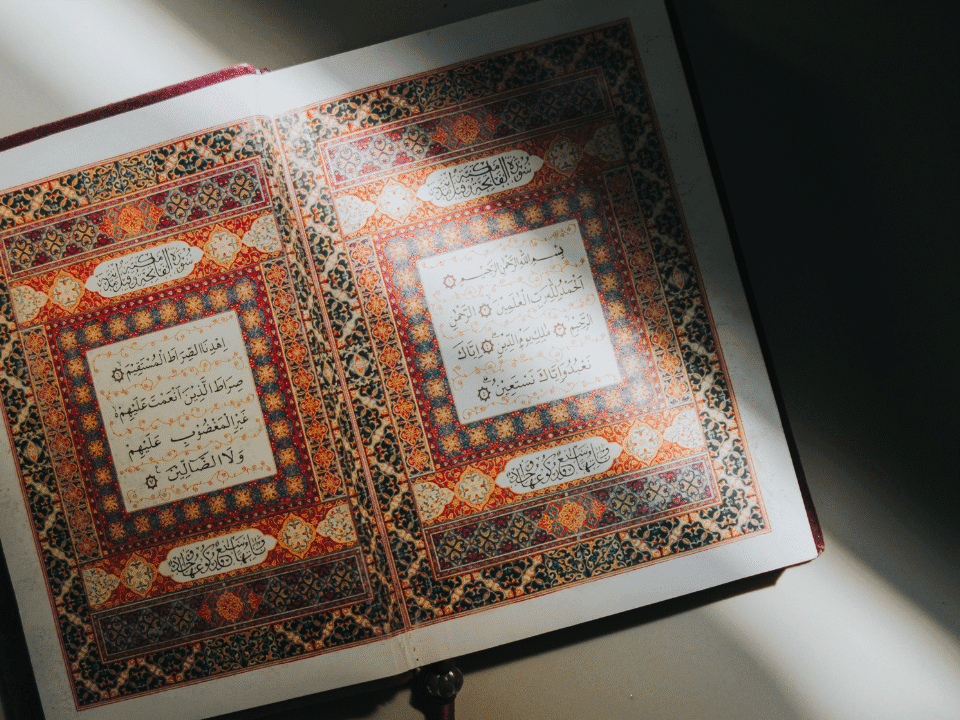 سُورَةُ الْفَاتِحَةِ مَكِّيَّة
بِسْمِ اللهِ الرَّحْمٰنِ الرَّحِيْمِ
اَلْحَمْدُ لِلّٰهِ رَبِّ الْعٰلَمِيْنَ الرَّحْمٰنِ
الرَّحِيْمِ مٰلِكِ يَوْمِ الدِّيْنِ اِيَّاكَ
نَعْبُدُ وَاِيَّاكَ نَسْتَعِيْنُ
سُورَةُ الْفَاتِحَةِ مَكِّيَّة
اِهْدِنَا الصِّرَاطَ الْمُسْتَقِيْمَ
صِرَاطَ الَّذِيْنَ اَنْعَمْتَ عَلَيْهِمْ
غَيْرِ الْمَغْضُوْبِ عَلَيْهِمْ
وَلَا الضَّالِّيْنَ